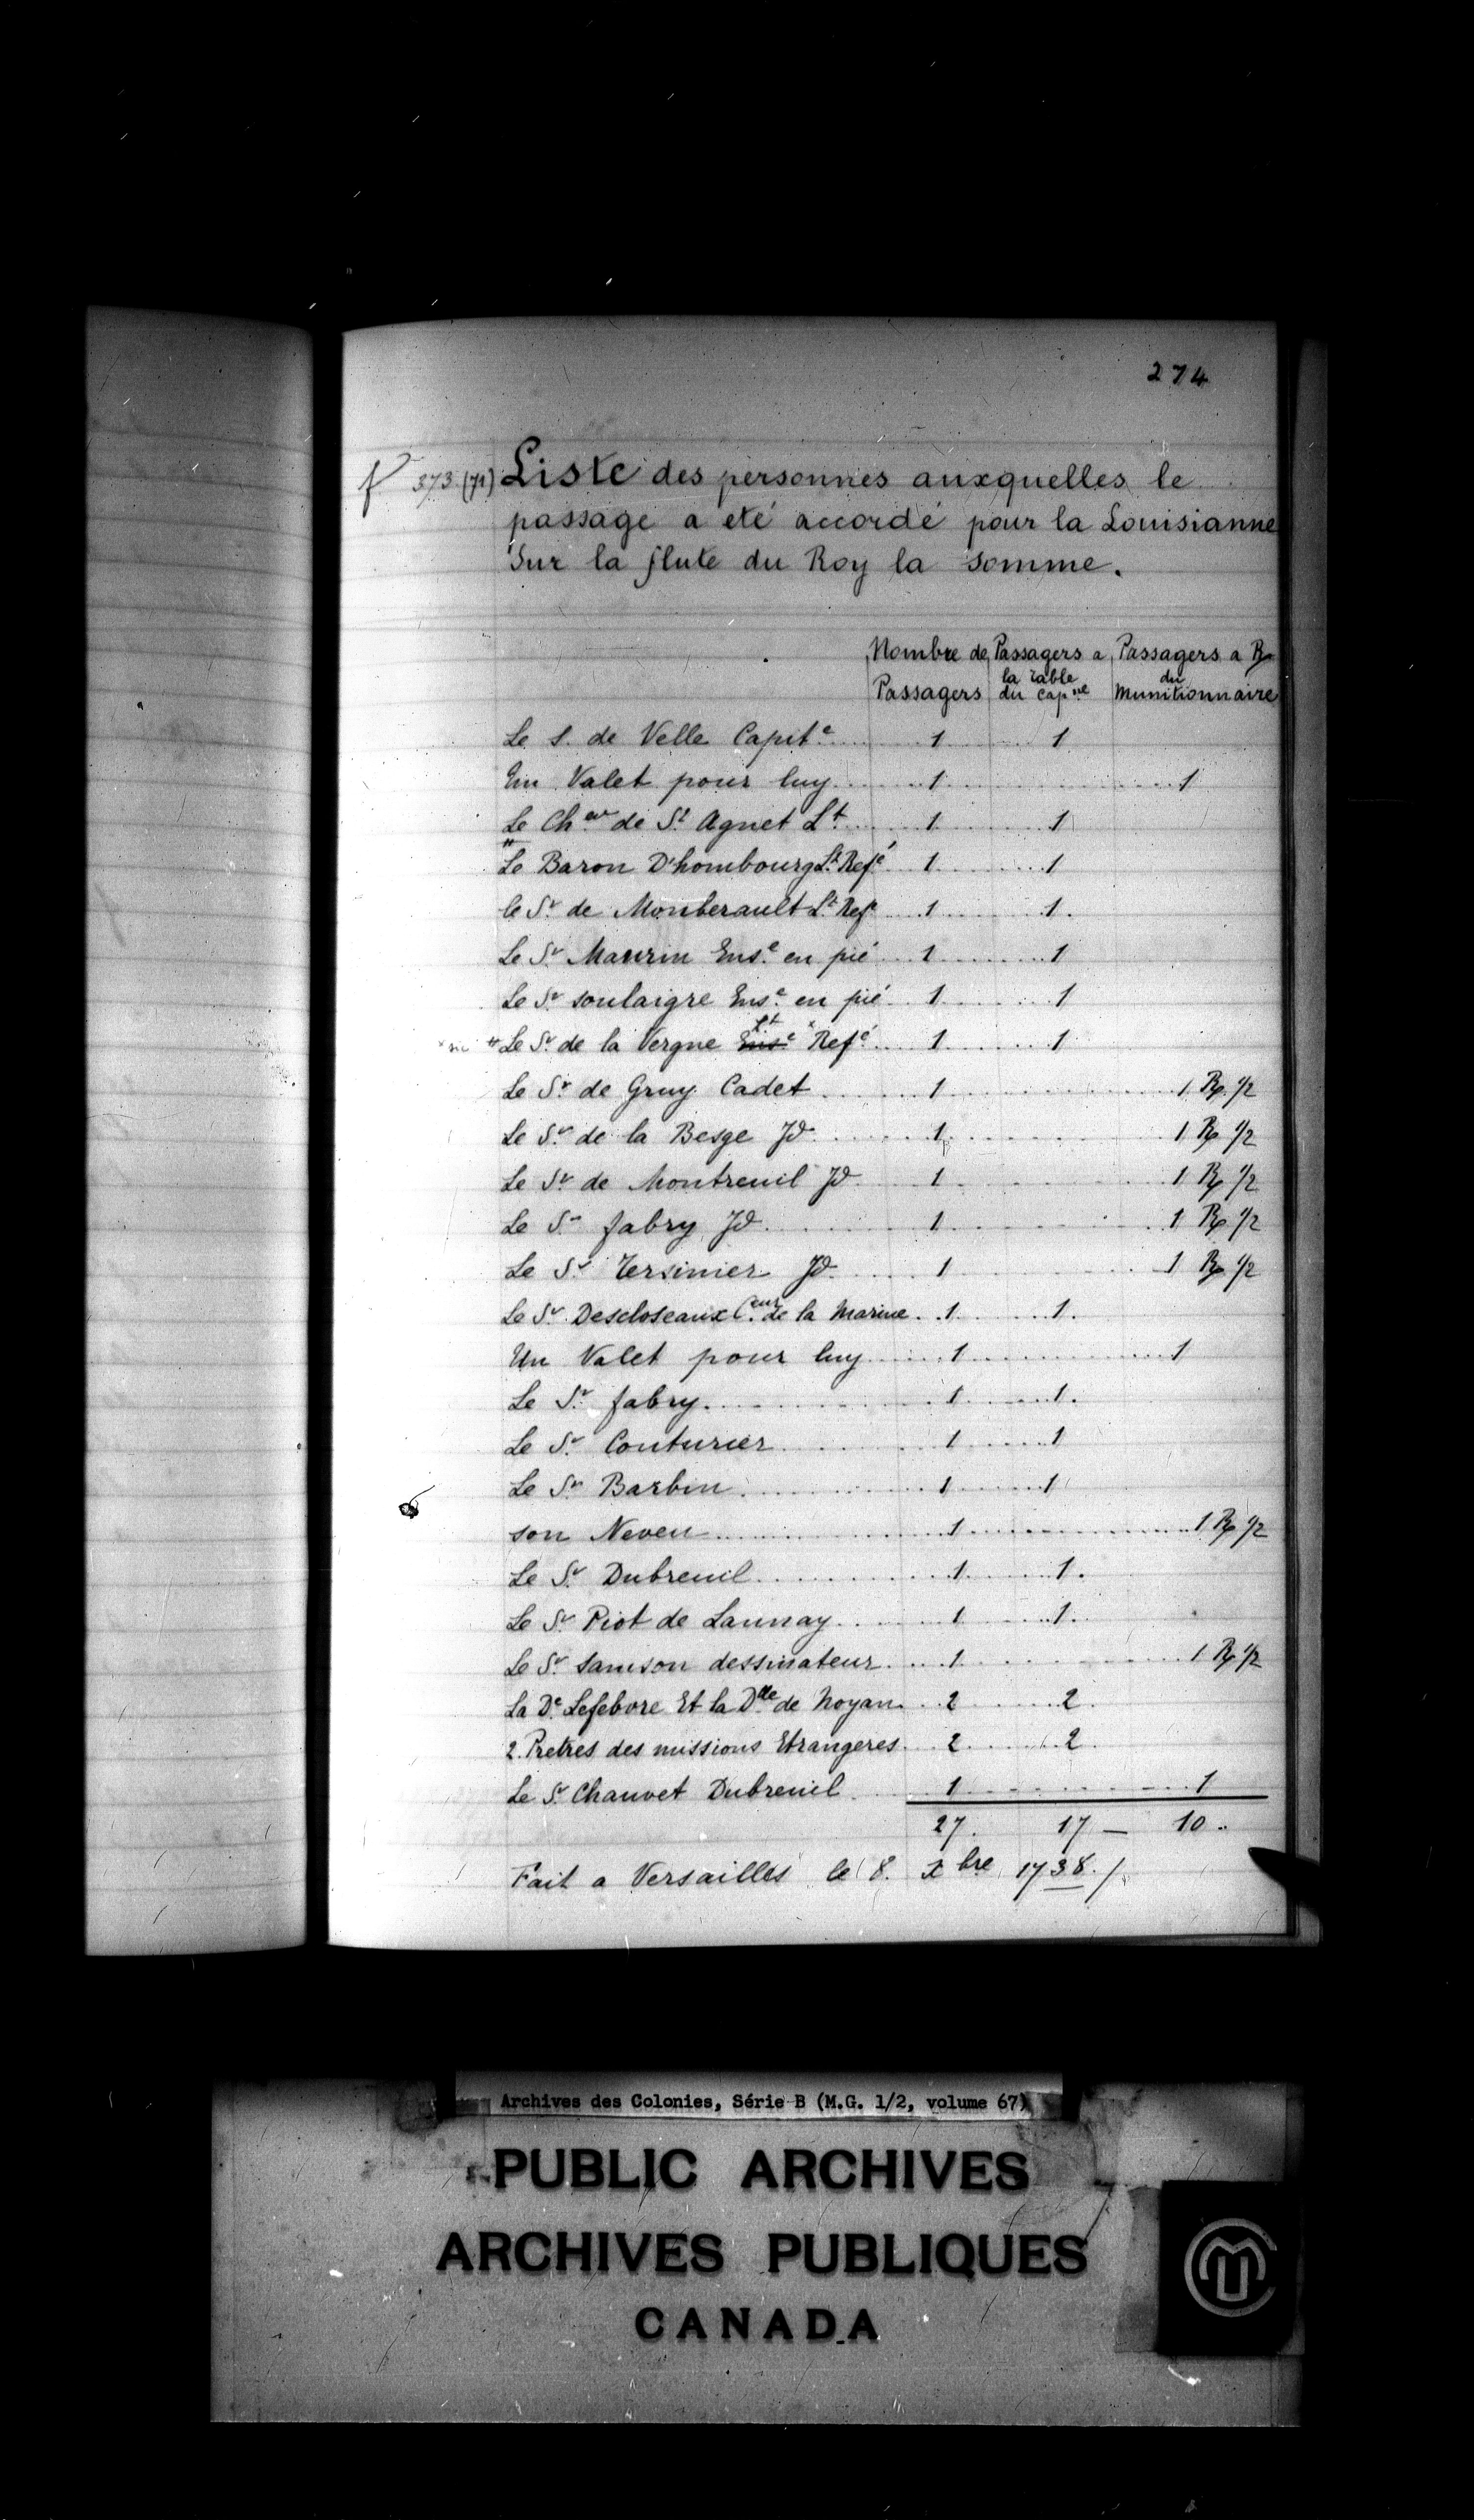 274
fo 373 (71) Liste des personnes auxquelles le
passage a eté accordé pour la Louisianne
Sur la flute du Roy la somme.
Nombre de Passagers | Passagers a la table du capne | Passagers a Rp du munitionnaire
Le S. de Velle Capite 1 1
Un Valet pour luy 1 1
Le Cher de St Agnet Lt 1 1
Le Baron D'hombourg Lt Refé 1 1
le Sr de Monberault Lt Refe 1 1.
Le Sr Maurin Ense en pié 1 1
Le Sr soulaigre Ense en pié 1 1
Le Sr de la Vergne Ense Lt x Refé 1 1
Le Sr de Gruy Cadet 1 1 Rp 1/2
Le Sr de la Besge Jd 1 1 Rp 1/2
Le Sr de Montreuil Jd 1 1 Rp 1/2
Le Sr fabry Jd 1 1 Rp 1/2
Le Sr Tersinier Jd 1 1 Rp 1/2
Le Sr Descloseaux Ceur de la Marine 1 1.
Un Valet pour luy 1 1
Le Sr fabry. 1 1.
Le Sr Couturier 1 1
Le Sr Barbin 1 1
son Neveu 1 1 Rp 1/2
Le Sr Dubreuil 1 1.
Le Sr Piot de Launay 1 1.
Le Sr Samson dessinateur 1 1 Rp 1/2
La De Lefebvre Et la Dlle de Noyan 2 2.
2. Pretres des missions Etrangeres 2 2.
Le Sr Chauvet Dubreuil 1 1
27. 17 — 10..
Fait a Versailles le 8. xbre 1738./.
Archives des Colonies, Série B (M.G. 1/2, volume 67)
PUBLIC ARCHIVES
ARCHIVES PUBLIQUES
CANADA